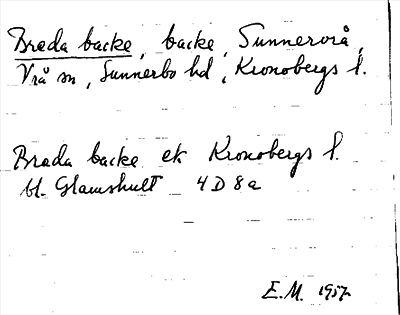 Breda backe, backe, Sunnervrå,
Vrå sn, Sunnerbo hd, Kronobergs l.
Breda backe ek Kronobergs l.
bl. Glamshult 4 D 8 a
E.M. 1957